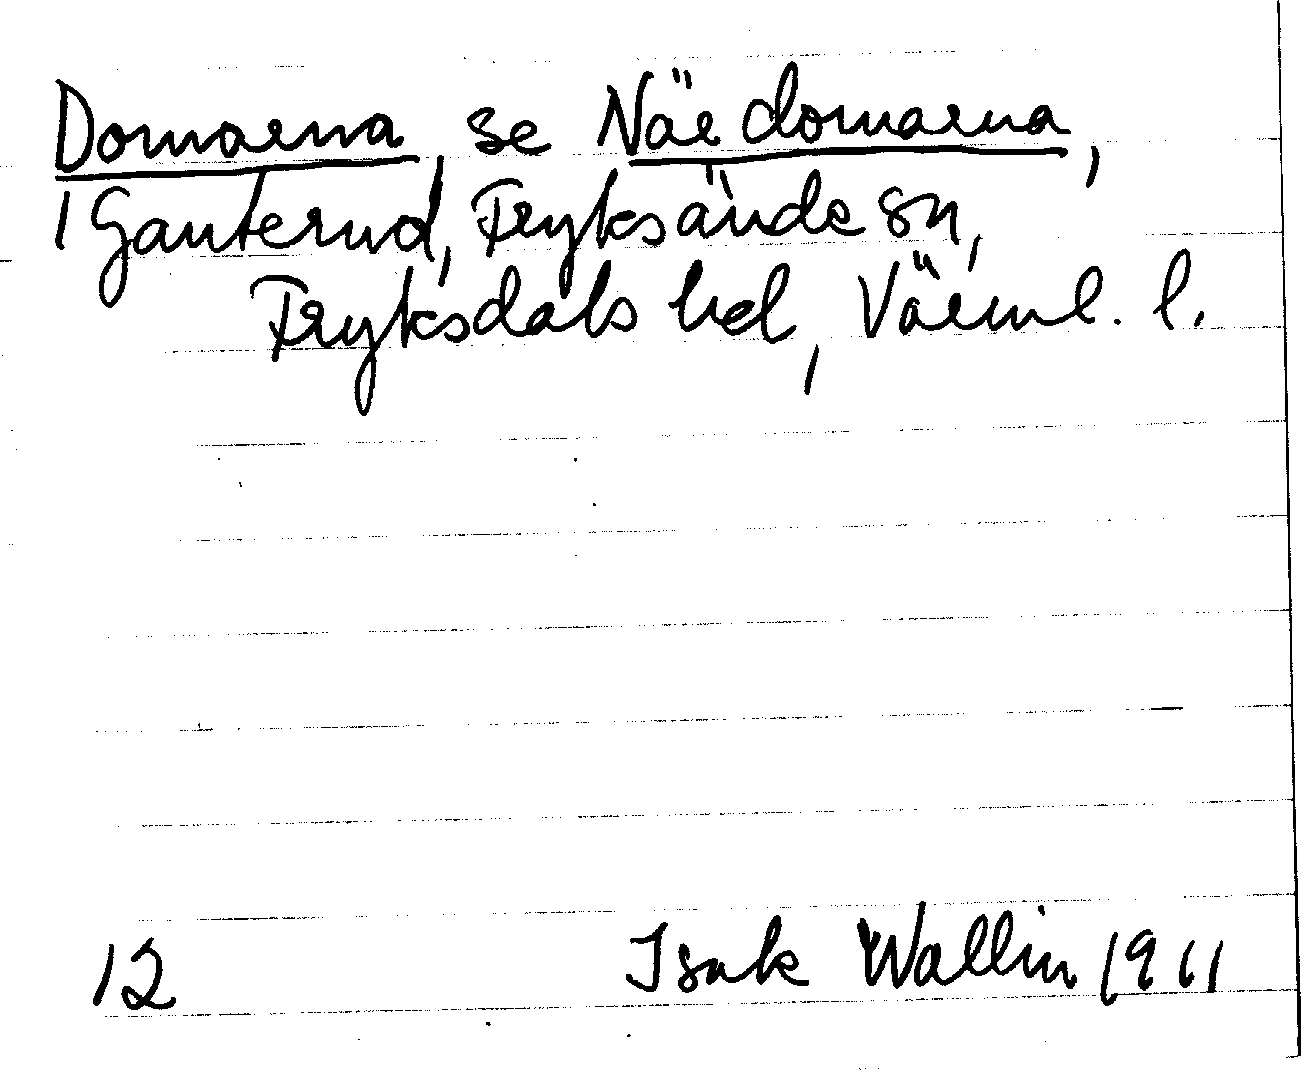 Domarna, se Närdomarna,
1 Ganterud, Fryksände sn,
Fryksdals hd, Värml. l.
12 Isak Wallin 1911